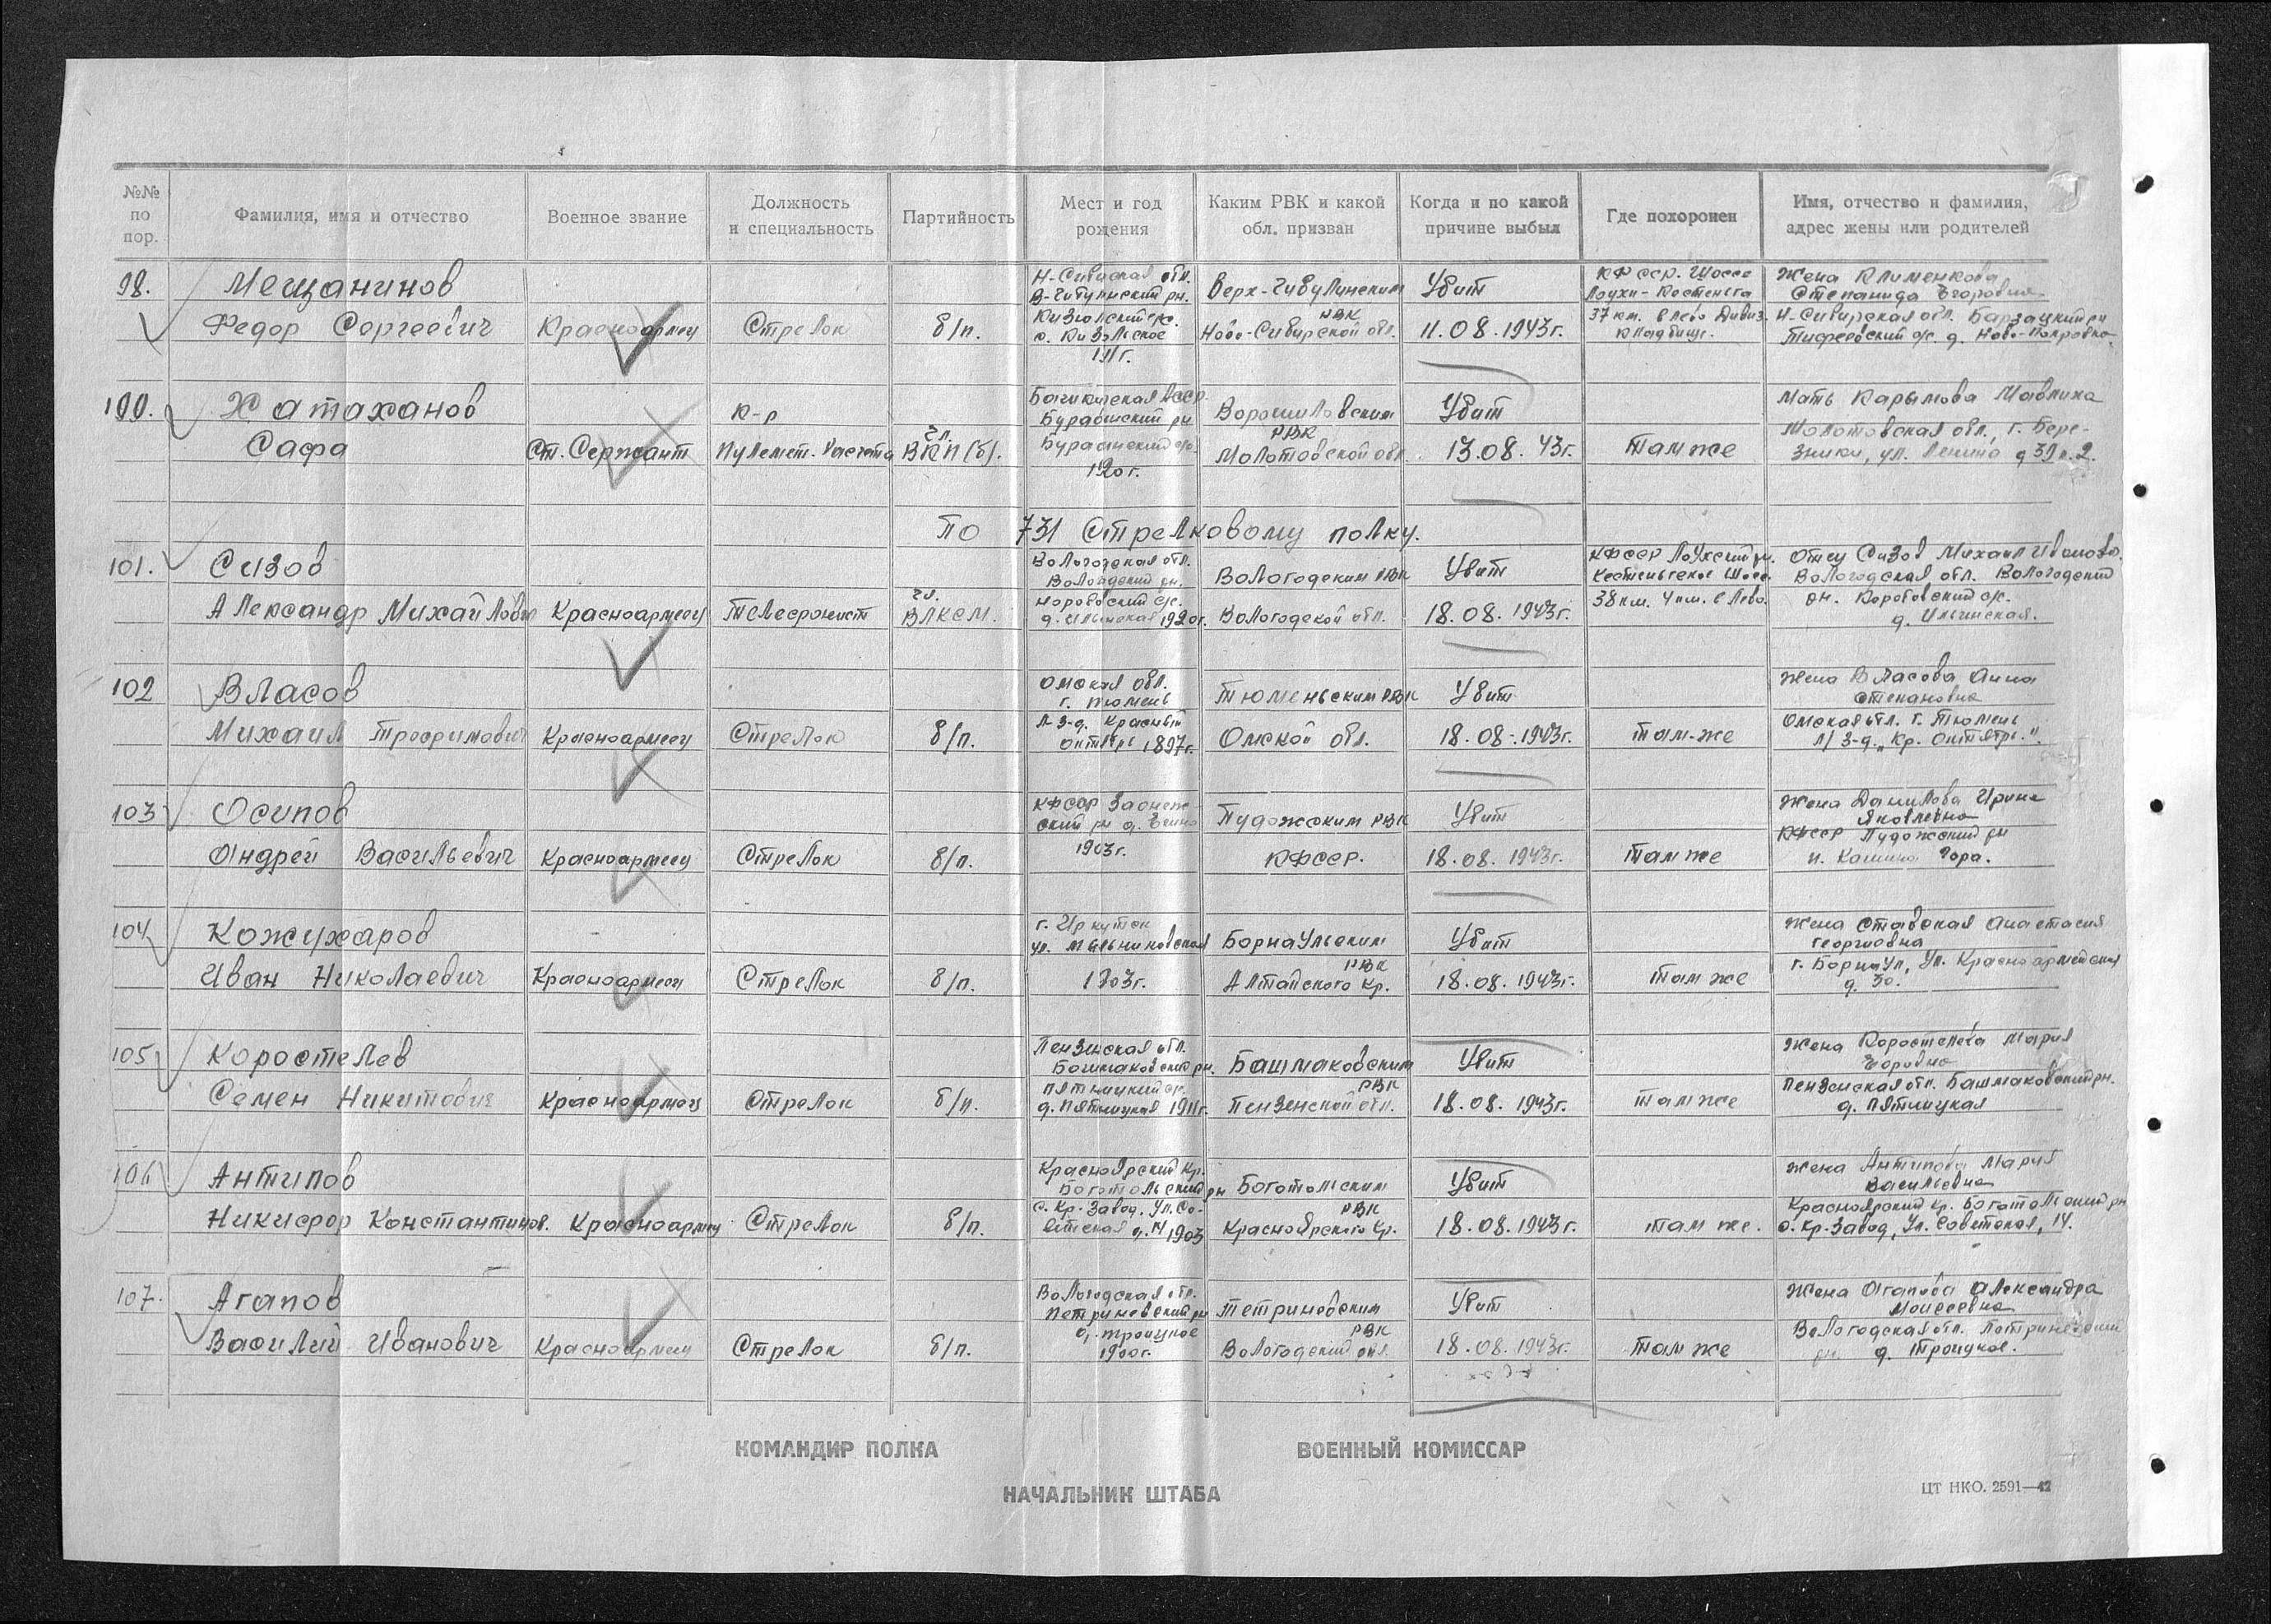 №№ по пор.
Фамилия, имя и отчество
Военное звание
Должность и специальность
Партийность
Мест и год рождения
Каким РВК и какой обл. призван
Когда и по какой причине выбыл
Где похоронен
Имя, отчество и фамилия, адрес жены или родителей
98.
Мещанинов
Федор Сергеевич
Красноармеец
Стрелок
б/п.
Н-Сибирская обл.
с. Кизольское
Ново-Сибирской обл.
РВК
Убит
11.08.1943г.
КФССР. Шоссе
Лоухи-Кестеньга
37 км. влево Дивиз.
кладбище.
Жена Клименкова
Степанида Егоровна
Н-Сибирская обл.
д. Ново-Покровка.
Хатаханов
Сафа
Ст. Сержант
к-р
пулемет. расчета
чл.
ВКП(б).
Бураевский рн
Ворошиловским
РВК
Молотовской обл.
Убит
13.08.43г.
там же
Мать Карымова Мавлика
Молотовская обл., г. Бере-
зники, ул. Ленина
По 731 Стрелковому полку.
101.
Сизов
Александр Михайлович
Красноармеец
Телефонист
чл.
ВЛКСМ.
Вологодская обл.
Вологодский рн.
д. Ильинская 1920г.
Вологодским РВК
Вологодской обл.
Убит
18.08.1943г.
КФССР Лоухский рн.
Кестеньгское Шоссе
38 км. 4 км. влево.
Отец Сизов Михаил Иванов.
Вологодская обл. Вологодский
рн.
д. Ильинская.
102
Власов
Михаил Трофимович
Красноармеец
Стрелок
б/п.
Омская обл.
г. Тюмень
Л. З-д. Красный
Октябрь 1897г.
Тюменьским РВК
Омской обл.
Убит
18.08.1943г.
там-же
Жена Власова Анна
Степановна
Омская обл. г. Тюмень
Л/З-д. „Кр. Октябрь."
103
Осипов
Андрей Васильевич
Красноармеец
Стрелок
б/п.
КФССР Заонеж-
ский рн
1903г.
Пудожским РВК
КФССР.
Убит
18.08.1943г.
там же
Жена Данилова Ирина
Яковлевна
КФССР Пудожский рн
Гора.
104
Кожухаров
Иван Николаевич
Красноармеец
Стрелок
б/п.
г. Иркутск
ул. Мыльниковская
1903г.
Барнаульским
РВК
Алтайского Кр.
Убит
18.08.1943г.
там же
Жена Ставская Анастасия
Георгиевна
г. Барнаул, Ул. Красноармейская
д. 30.
105
Коростелев
Семен Никитович
Красноармеец
Стрелок
б/п.
Пензенская обл.
Башмаковский рн.
Пятницкий с/с.
д. Пятницкая 1911г.
Башмаковским
РВК
Пензенской обл.
Убит
18.08.1943г.
там же
Жена Коростелева Мария
Пензенская обл. Башмаковский рн.
д. Пятницкая
106
Антипов
Никифор Константинов.
Красноармеец
Стрелок
б/п.
Красноярский кр.
Боготольский рн
с. Кр. Завод, ул. Со-
ветская д. 14 1903
Боготольским
РВК
Красноярского Кр.
Убит
18.08.1943г.
там же.
Жена Антипова Мария
Васильевна
Красноярский кр. Боготольский рн
с. Кр. Завод, Ул. Советская, 14.
107.
Агапов
Василий Иванович
Красноармеец
Стрелок
б/п.
Вологодская обл.
Петриневский рн
д. Троицкое
1900г.
Петриневским
РВК
Вологодский обл.
Убит
18.08.1943г.
там же
Жена Агапова Александра
Моисеевна
Вологодская обл. Петриневский
рн. д. Троицкое.
КОМАНДИР ПОЛКА
ВОЕННЫЙ КОМИССАР
НАЧАЛЬНИК ШТАБА
ЦТ НКО. 2591—42